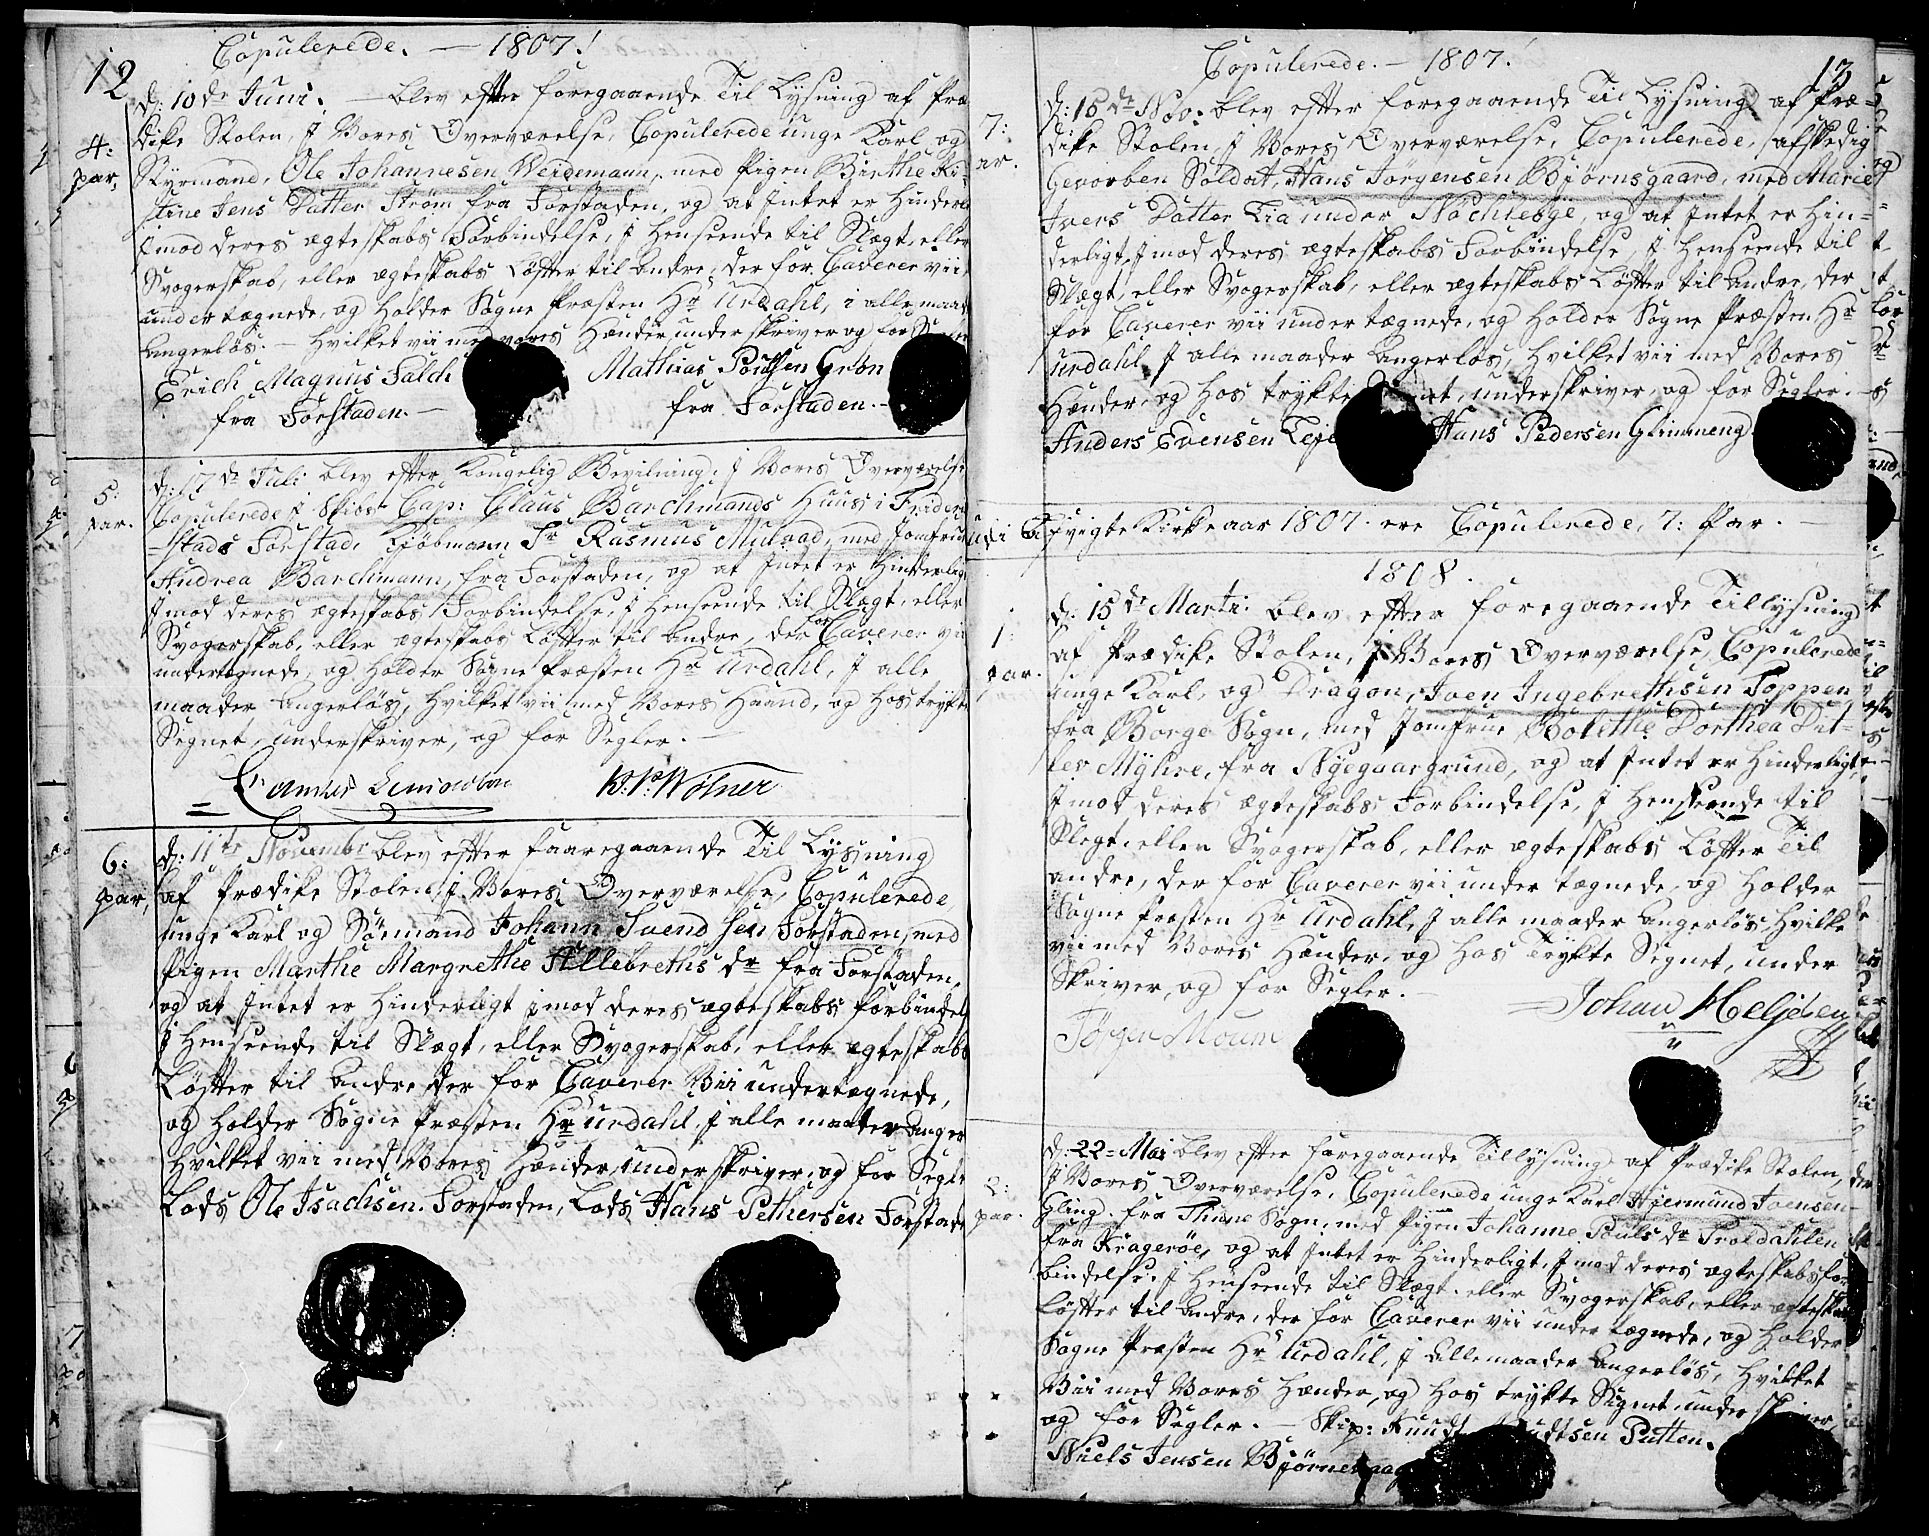 Copulerede. — 1807!
12
4:
par,
d: 10de Juni. — blev efter foregaaende Til Lysning af Præ
dike Stolen, J Vores Overværelse, Copulerede unge Karl og
Styrmand, Ole Johannesen Weidemann, med Pigen Birthe Ki-
stine Jens Datter Strøm fra Forstaden, og at Intet er Hinder
imod deres ægteskabs Forbindelse, J Henseende til Slægt, eller
Svogerskab, eller ægteskabs Løfter til andre, der for Caverer vii
undertægnede, og holder Sogne Præsten Hr Urdahl, i alle maad
angerløs. — hvilket vii med vores Hænder underskriver og for
Erich Magnus Falch Mathias Poulsen Grøn
fra Forstaden. — fra Forstaden. —
5:
par.
d: 17de Juli blev efter Kongelig Bevilning, J Vores Overværelse
Copulerede i Skibs Cap: Claus Barchmands Huus i Frider
=stads Forstad, Kjøbmann Sr Rasmus Mulvad, med Jomfrue
Andrea Barchmann, fra Forstaden, og at Intet er Hinderlig
J mod deres ægteskabs Forbindelse, J Henseende til Slægt, eller
Svogerskab, eller ægteskabs Løfter til andre, der for Caverer vi
undertegnede, og holder Sogne Præsten Hr Urdahl, J alle
maader angerløs, hvilket vii med Vores Haand, og hos trykt
Segnet, underskriver, og for Segler. —
Wölner
6:
par,
d: 11te Novembr blev efter faaregaaende Til Lysning
af Prædike Stolen J Vores Overværelse, Copulerede
unge Karl og Sømand Johann Svend sen Forstaden, med
Pigen Marthe Margrethe Allebreths dr fra Forstaden,
og at Intet er hinderligt imod deres ægteskabs forbindels
J Henseende til Slægt, eller Svogerskab, eller ægteskabs
Løfter til andre der for Caverer Vii undertægnede,
og holder Sogne Præsten Hr Urdahl, J alle maader anger
hvilket vii med Vores Hænder, underskriver, og for Segle
Lods Ole Isachsen. Forstaden, Lods Hans Pethersen Forstade
Copulerede. — 1807!
13
7:
ar.
d: 15de Nov: blev efter foregaaende Til Lysning af Præ=
dike Stolen, J Vores Overværelse, Copulerede, afskedig
Gevorben Soldat, Hans Jörgensen Bjørnsgaard, med Marie
Ivers Datter Lia under Nøchlebye, og at Intet er Hin=
derligt J mod deres ægteskabs Forbindelse, J Henseende til
Slægt, eller Svogerskab, eller ægteskabs Løfter til andre, der
for Caverer vii undertægnede, og holder Sogne Præsten Hr
Urdahl, J alle maader angerløs, hvilket vii med Vores
Hænder, og hos trykte underskriver, og for Segler. —
Anders Evensen Hans Pedersen Glimmeng
vigte Kirke aar 1807. ere Copulerede, 7: Par. —
1808.
1:
par.
d: 15de Marti: blev efter foregaaende Tillysning
af Prædike Stolen, J Vores Overværelse, Copulerede
unge Karl, og Dragon, Iven Ingebrethsen Toppen
fra Borge Sogn, med Jomfrue Bolethe Dorthea Dit=
lev Mÿhre, fra Nyegaargrund, og at Intet er Hinderligt,
J mod deres ægteskabs Forbindelse, J Henseende til
Slegt, eller Svogerskab, eller ægteskabs Løfter Til
andre, der for Caverer vii under tægnede, og holder
Sogne Præsten Hr Urdahl, J alle maader angerløs, hvilke
vii med Vores Hænder, og hos Trykte Segnet, under
Skriver, og for Segler. —
Jörgen Moum Johan Heljesen
2:
par.
d: 22= Mai blev efter foregaaende Tillysning af Prædike Stolen,
J Vores Overværelse, Copulerede unge Karl Hiermund Ivensen
Gling. fra Thune Sogn, med Pigen Johanne Pouls dr Troldahlen
fra Kragerøe, og at Intet er hinderligt, J mod deres ægteskabs for
bindelse, J Henseende til Slægt, eller Svogerskab, eller ægteskabs
Løfter til andre, der for Caverer vii under tægnede, og holder
Sogne Præsten Hr Urdahl, J alle maader angerløs, hvilket
Vii med Vores Hænder, og hos trykte Signet, under skriver
og for Segler. — Skip: Knudt Putten.
Niels Jensen Bjørnegaa